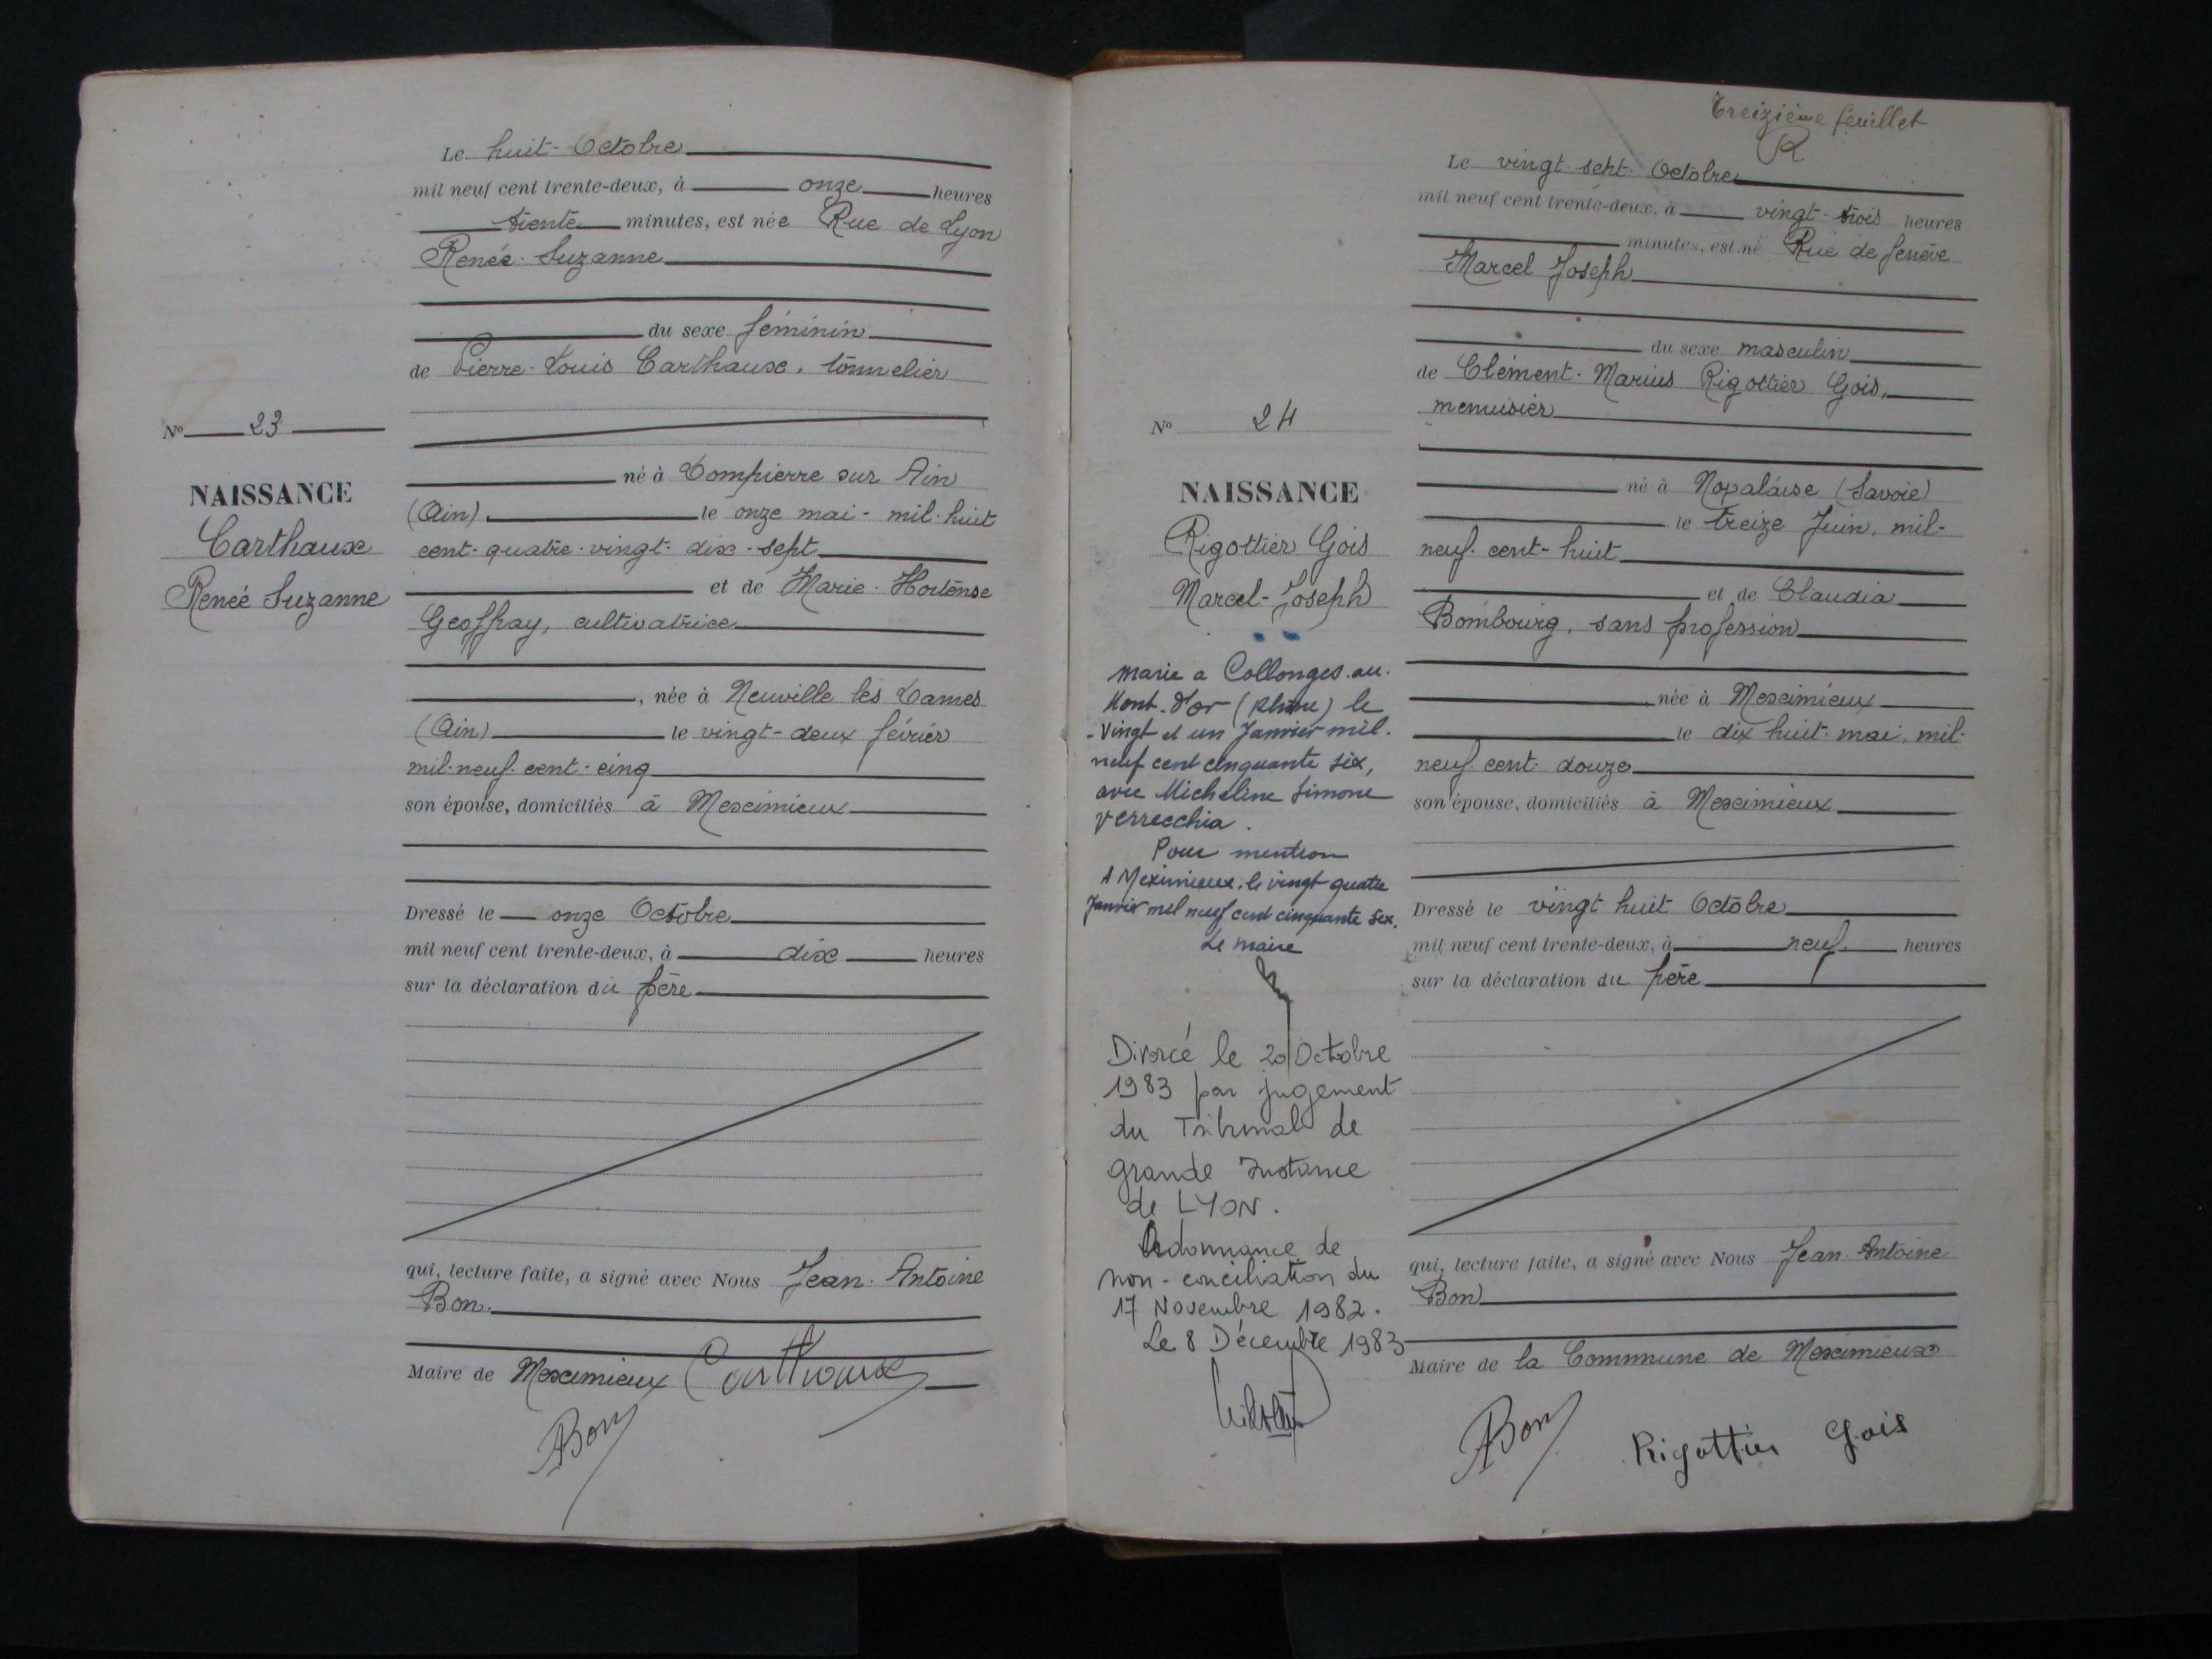 Le huit - Octobre
mil neuf cent trente-deux, à onze heures
trente minutes, est née Rue de Lyon
Renée - Suzanne
du sexe féminin
de Pierre - Louis Carthaux, tonnelier
né à Dompierre sur Ain
(Ain) le onze mai - mil - huit
cent - quatre - vingt - dix - sept
et de Marie - Hortense
Geoffray, cultivatrice
, née à Neuville les Dames
(Ain) le vingt - deux février
mil - neuf - cent - cinq
son épouse, domiciliés à Meximieux
Dressé le onze Octobre
mil neuf cent trente-deux, à dix heures
sur la déclaration du père
qui, lecture faite, a signé avec Nous Jean - Antoine
Bon.
Maire de Meximieux Carthaux
ABon
No 23
NAISSANCE
Carthaux
Renée Suzanne
Treizième feuillet
R
Le vingt - sept - Octobre
mil neuf cent trente-deux, à vingt - trois heures
minutes, est né Rue de Genève
Marcel Joseph
du sexe masculin
de Clément - Marius Rigottier Gois,
menuisier
né à Novalaise (Savoie)
le treize Juin, mil -
neuf - cent - huit
et de Claudia
Bombourg, sans profession
née à Meximieux
le dix huit - mai, mil -
neuf - cent - douze
son épouse, domiciliés à Meximieux
Dressé le vingt huit Octobre
mil neuf cent trente-deux, à neuf heures
sur la déclaration du père
qui, lecture faite, a signé avec Nous Jean - Antoine
Bon
Maire de la Commune de Meximieux
ABon Rigottier Gois
No 24
NAISSANCE
Rigottier Gois
Marcel - Joseph
marie a Collonges - au -
Mont - d'or (Rhône) le
- Vingt et un Janvier mil -
neuf cent cinquante six,
avec Micheline Simone
Verrecchia.
Pour mention
A Meximieux, le vingt quatre
Janvier mil neuf cent cinquante six.
Le maire
Divorcé le 20 Octobre
1983 par jugement
du Tribunal de
Grande Instance
de LYON.
Ordonnance de
non - conciliation du
17 Novembre 1982.
Le 8 Décembre 1983